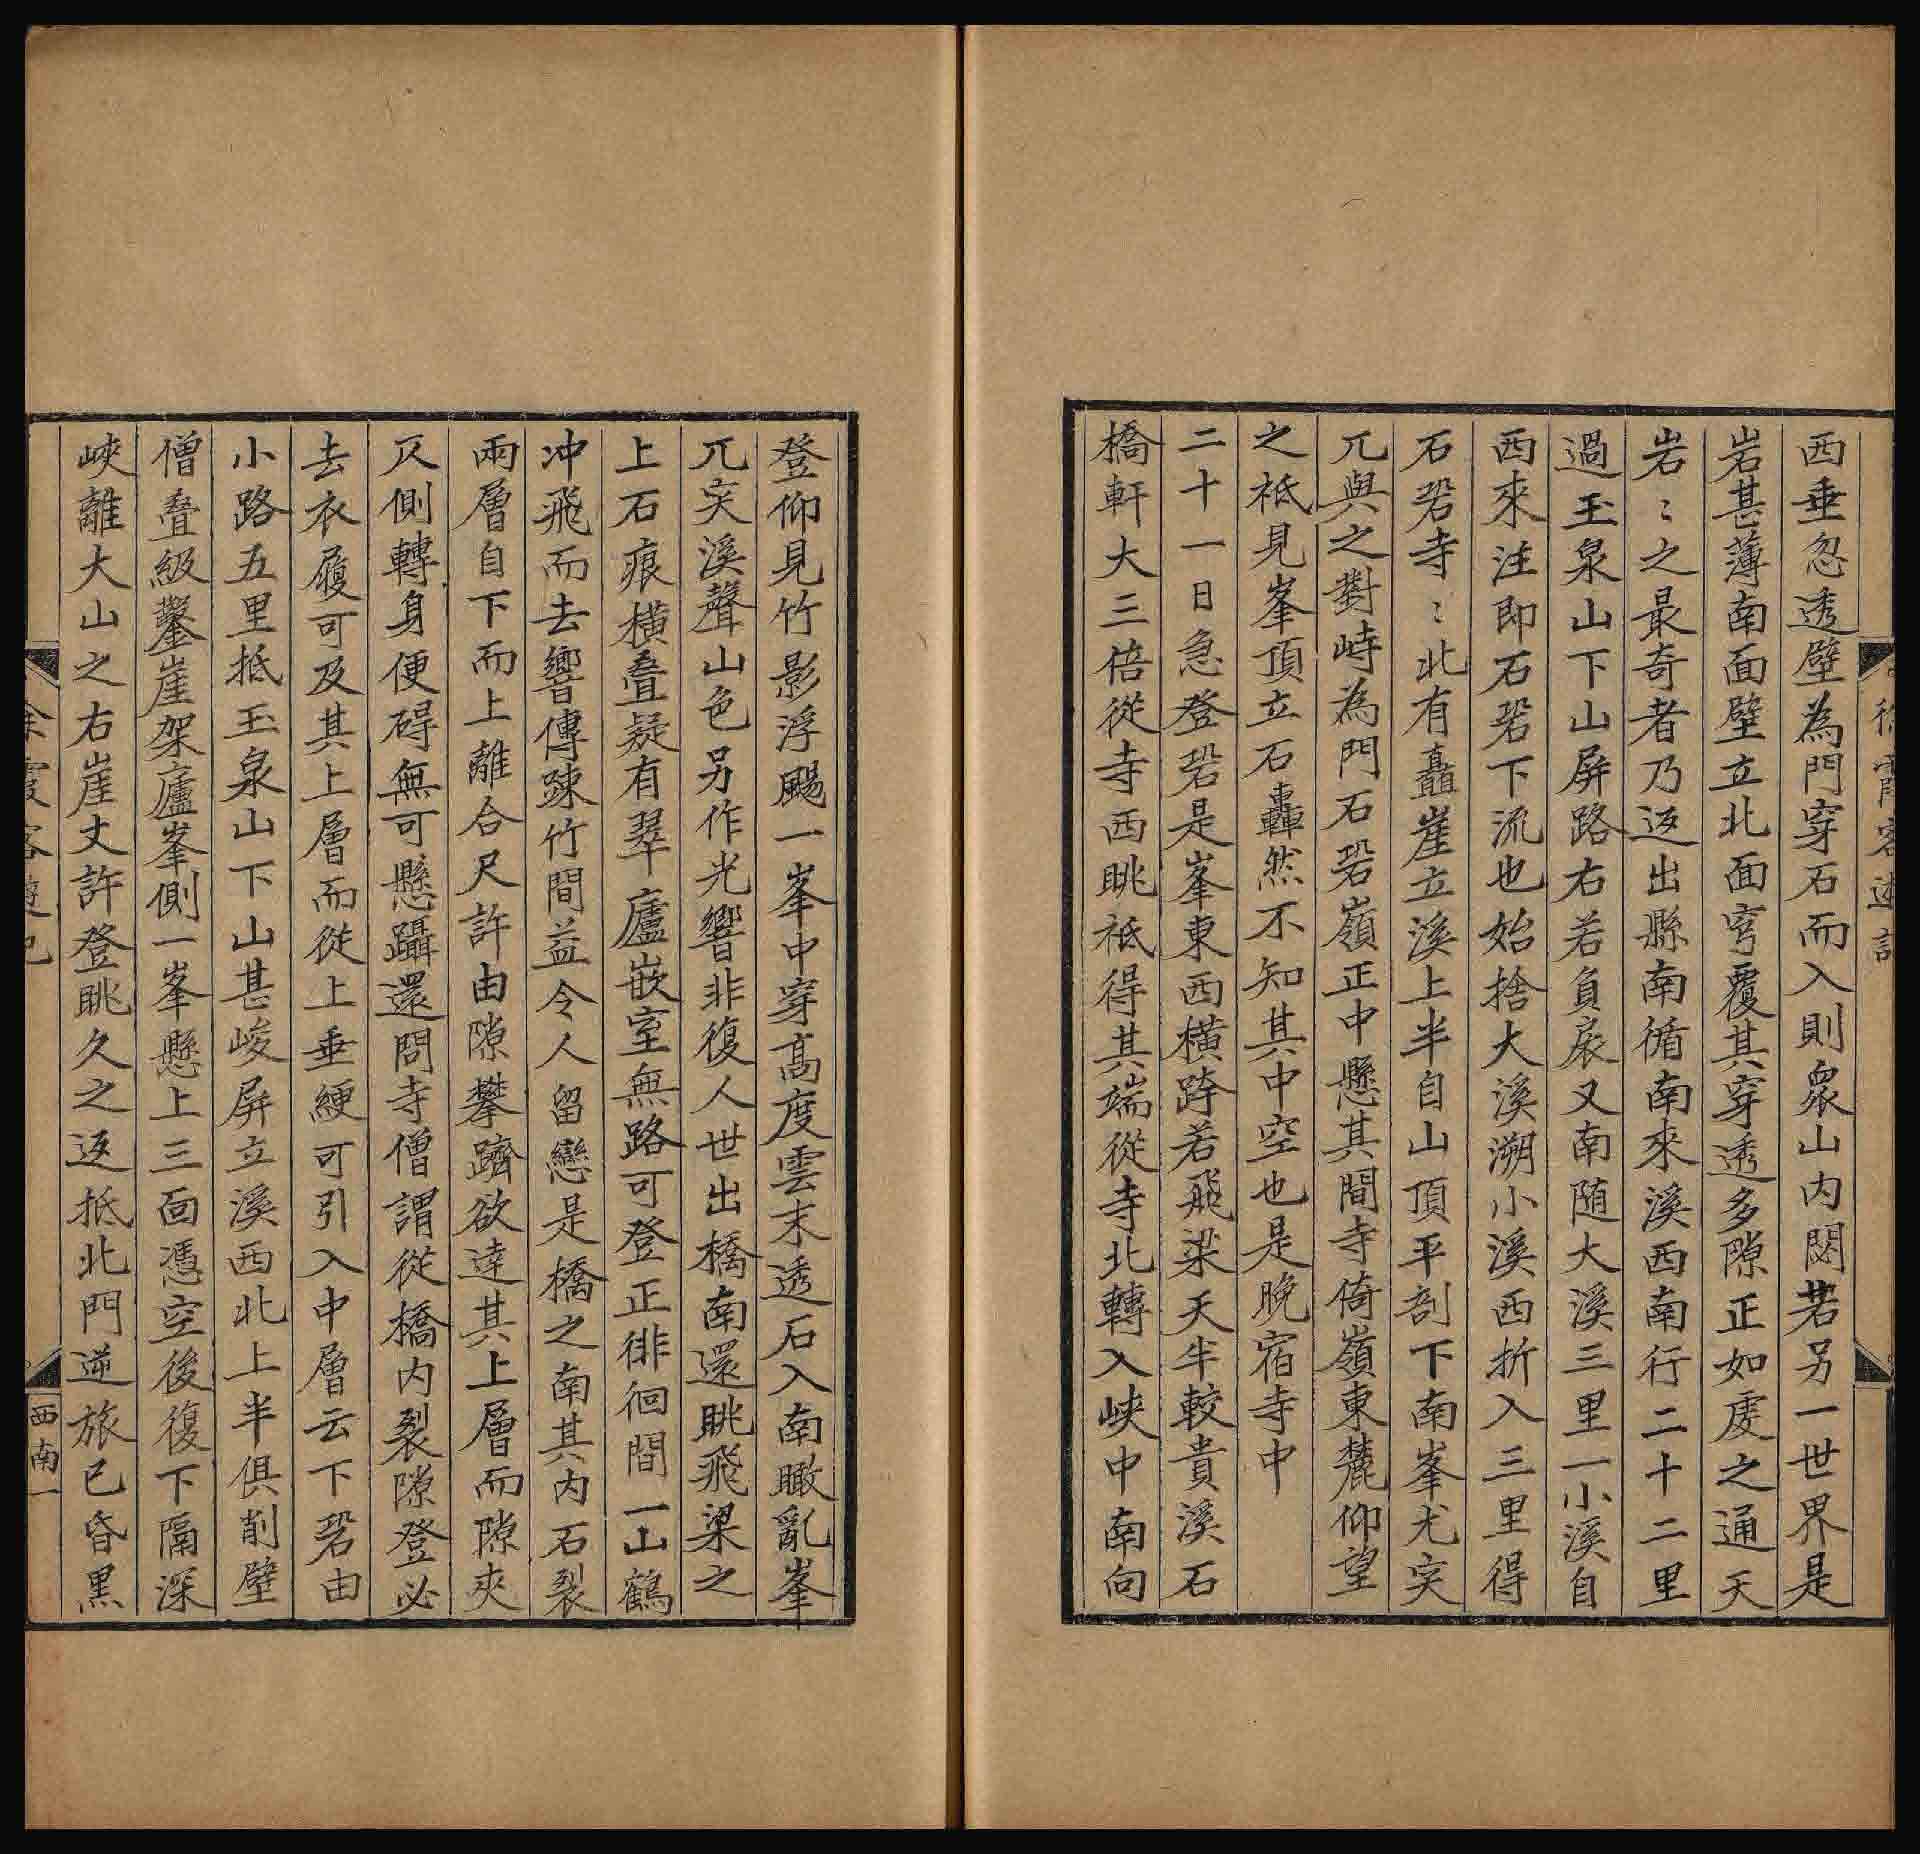 西垂忽透壁為門穿石而入則衆山内閟若另一世界是
岩甚薄南面壁立北面穹覆其穿透多隙正如處之通天
岩〻之最奇者乃返出縣南循南來溪西南行二十二里
過玉泉山下山屏路右若負扆又南随大溪三里一小溪自
西來注即石硞下流也始捨大溪溯小溪西折入三里得
石硞寺〻北有矗崖立溪上半自山頂平剖下南峯尤突
兀與之對峙為門石硞嶺正中懸其間寺倚嶺東麓仰望
之祗見峯頂立石轟然不知其中空也是晚宿寺中
二十一日急登硞是峯東西横跨若飛梁天半較貴溪石
橋軒大三倍從寺西眺祗得其端從寺北轉入峽中南向
登仰見竹影浮颺一峯中穿髙度雲末透石入南瞰亂峯
兀突溪聲山色另作光響非復人世出橋南還眺飛梁之
上石痕横叠疑有翠廬嵌室無路可登正徘徊間一山鶴
冲飛而去響傳踈竹間益令人留戀是橋之南其内石裂
兩層自下而上離合尺許由隙攀躋欲達其上層而隙夾
仄側轉身便碍無可懸躡還問寺僧謂從橋内裂隙登必
去衣履可及其上層而從上垂綆可引入中層云下硞由
小路五里抵玉泉山下山甚峻屏立溪西北上半俱削壁
僧叠級鑿崖架廬峯側一峯懸上三面憑空後復下隔深
峽離大山之右崖丈許登眺久之返抵北門逆旅已昏黒
西南一